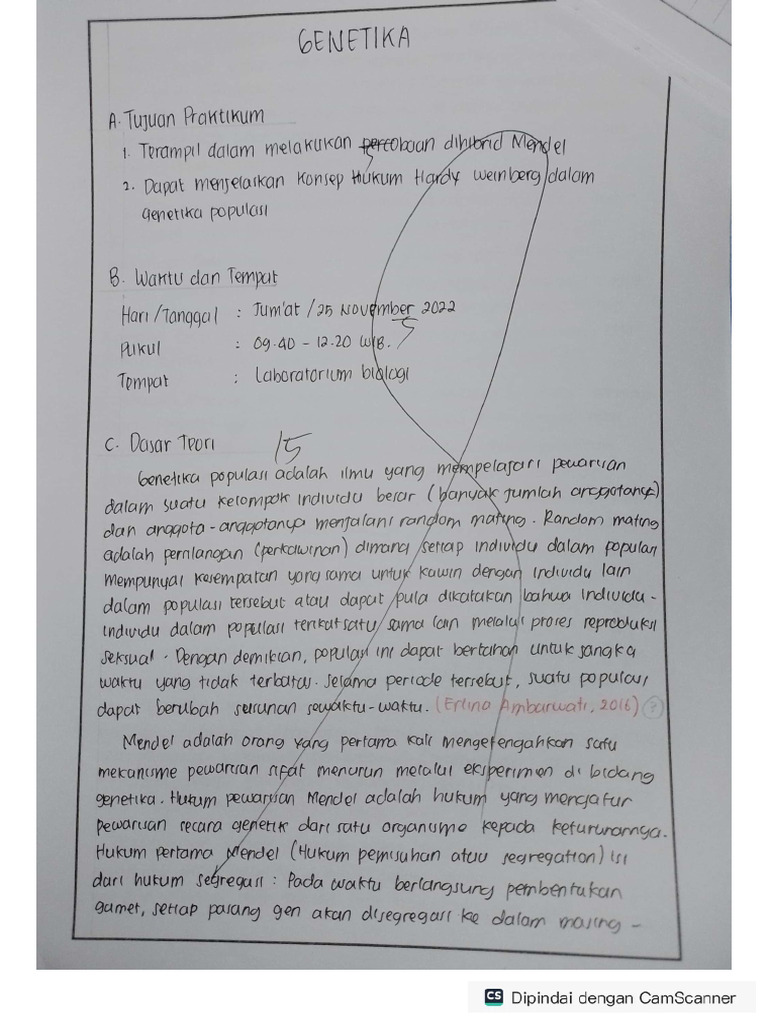 GENETIKA
A. Tujuan Praktikum
1. Terampil dalam melakukan percobaan dihibrid Mendel
2. Dapat menjelaskan konsep Hukum Hardy Weinberg dalam
genetika populasi
B. Waktu dan Tempat
Hari/Tanggal : Jum'at / 25 November 2022
5
Pukul : 09.40 - 12.20 WIB.
Tempat : Laboratorium biologi
C. Dasar Teori 15
Genetika populasi adalah ilmu yang mempelajari pewarisan
dalam suatu kelompok individu besar (banyak jumlah anggotanya)
dan anggota-anggotanya menjalani random mating. Random mating
adalah persilangan (perkawinan) dimana setiap individu dalam populasi
mempunyai kesempatan yang sama untuk kawin dengan individu lain
dalam populasi tersebut atau dapat pula dikatakan bahwa individu-
individu dalam populasi terikat satu sama lain melalui proses reproduksi
seksual. Dengan demikian, populasi ini dapat bertahan untuk jangka
waktu yang tidak terbatas. Selama periode tersebut, suatu populasi
dapat berubah susunan sewaktu-waktu. (Erlina Ambarwati, 2016) ?
Mendel adalah orang yang pertama kali mengetengahkan satu
mekanisme pewarisan sifat menurun melalui eksperimen di bidang
genetika. Hukum pewarisan Mendel adalah hukum yang mengatur
pewarisan secara genetik dari satu organisme kepada keturunannya.
Hukum pertama Mendel (Hukum pemisahan atau segregation) isi
dari hukum segregasi : Pada waktu berlangsung pembentukan
gamet, setiap pasang gen akan disegregasi ke dalam masing-
CS Dipindai dengan CamScanner